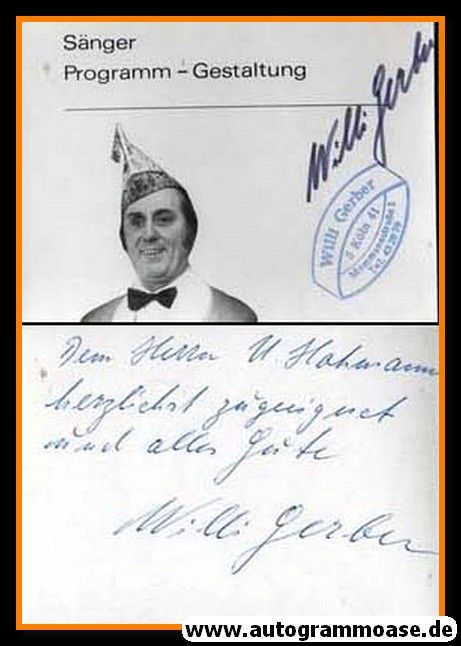 Sänger
Programm – Gestaltung
Willi Gerber
Willi Gerber
5 Köln 41
Mommsenstraße
Tel. 43 29 79
Dem Herrn U. Hohmann
herzlichst zugeeignet
und alles Gute
Willi Gerber
www.autogrammoase.de